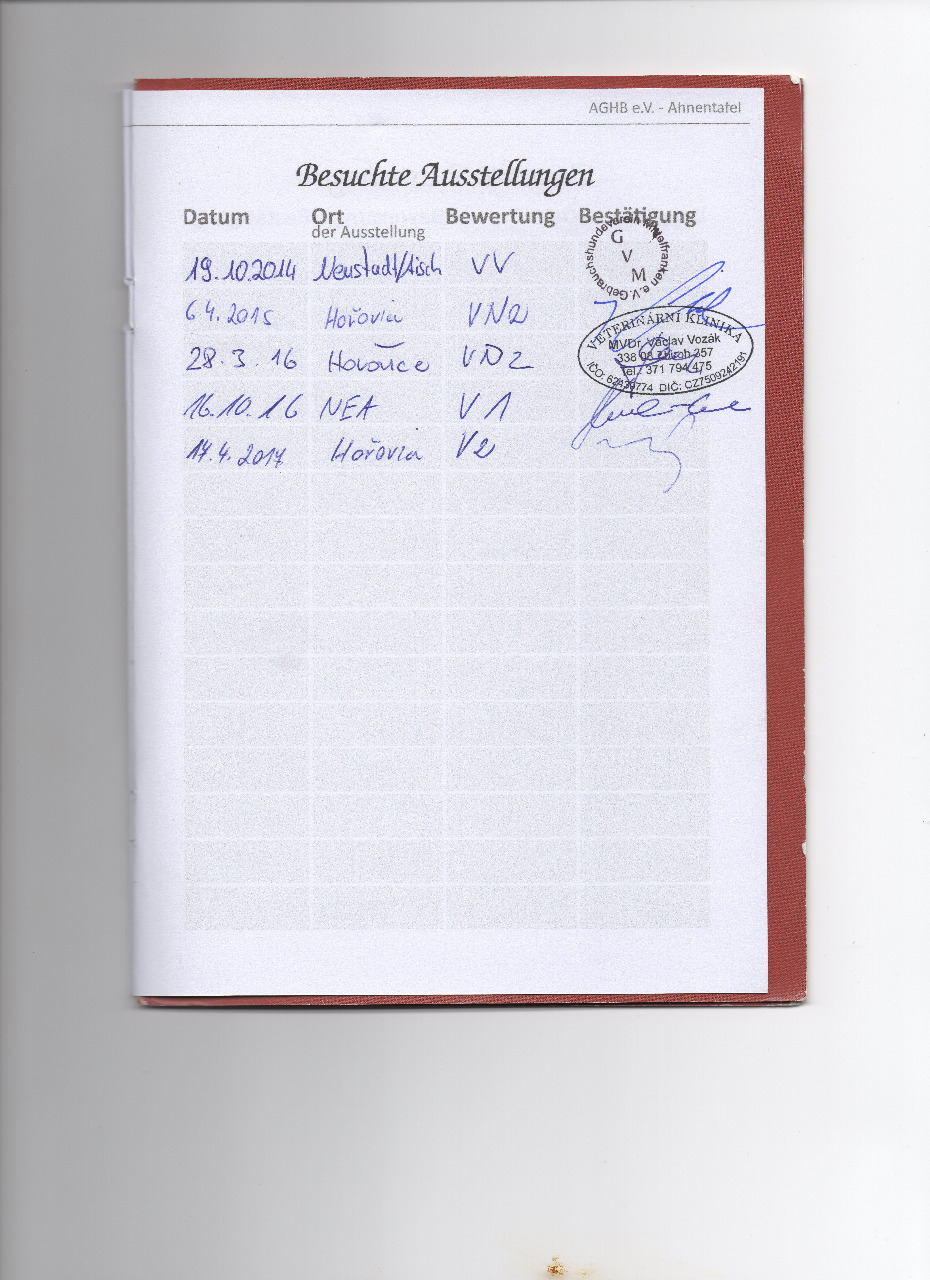 AGHB e.V. - Ahnentafel
Besuchte Ausstellungen
Datum Ort Bewertung Bestätigung
der Ausstellung
Gebrauchshundeverein Mittelfranken e.V.
G
V
M
19.10.2014 Neustadt/Aisch VV
6.4.2015 Hořovia VN2
28.3.16 Hořovice VN2
16.10.16 NEA V1
17.4.2017 Hořovia V2
VETERINÁRNÍ KLINIKA
MVDr. Václav Vozák
338 08 Zbiroh 357
tel.: 371 794 475
IČO: 62839774 DIČ: CZ7509242191